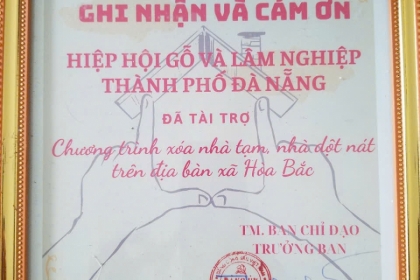 GHI NHẬN VÀ CẢM ƠN
HIỆP HỘI GỖ VÀ LÂM NGHIỆP
THÀNH PHỐ ĐÀ NẴNG
ĐÃ TÀI TRỢ
Chương trình xóa nhà tạm, nhà dột nát
trên địa bàn xã Hòa Bắc
TM. BAN CHỈ ĐẠO
TRƯỞNG BAN